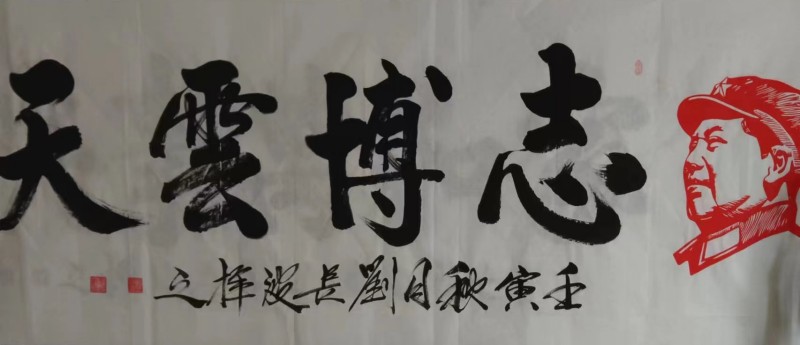 志博雲天
壬寅秋月劉長波揮之